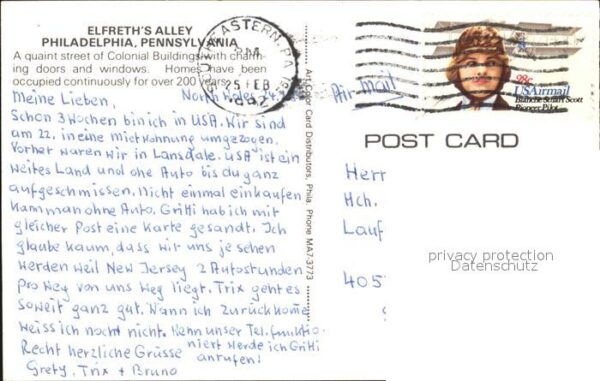 ELFRETH'S ALLEY
PHILADELPHIA, PENNSYLVANIA
A quaint street of Colonial Buildings with charm-
ing doors and windows. Homes have been
occupied continuously for over 200 years.
North Wales 24.
Meine Lieben,
Schon 3 Wochen bin ich in USA. Wir sind
am 22. in eine Mietwohnung umgezogen.
Vorher waren wir in Lansdale. USA ist ein
weites Land und ohne Auto bis du ganz
aufgeschmissen. Nicht einmal einkaufen
kann man ohne Auto. Gritli hab ich mit
gleicher Post eine Karte gesandt. Ich
glaube kaum, dass wir uns je sehen
werden weil New Jersey 2 Autostunden
pro Weg von uns weg liegt. Trix geht es
soweit ganz gut. Wann ich zurückkome
weiss ich noch nicht. Wenn unser Tel. funktio-
niert werde ich Gritli
anrufen!
Recht herzliche Grüsse
Grety, Trix + Bruno
Art Color Card Distributors, Phila. Phone MA7-3773
SOUTHEASTERN, PA
PM
25 FEB
1982
Air mail
28c
USAirmail
Blanche Stuart Scott
Pioneer Pilot
POST CARD
Herr
Hch.
Lauf
405
privacy protection
Datenschutz